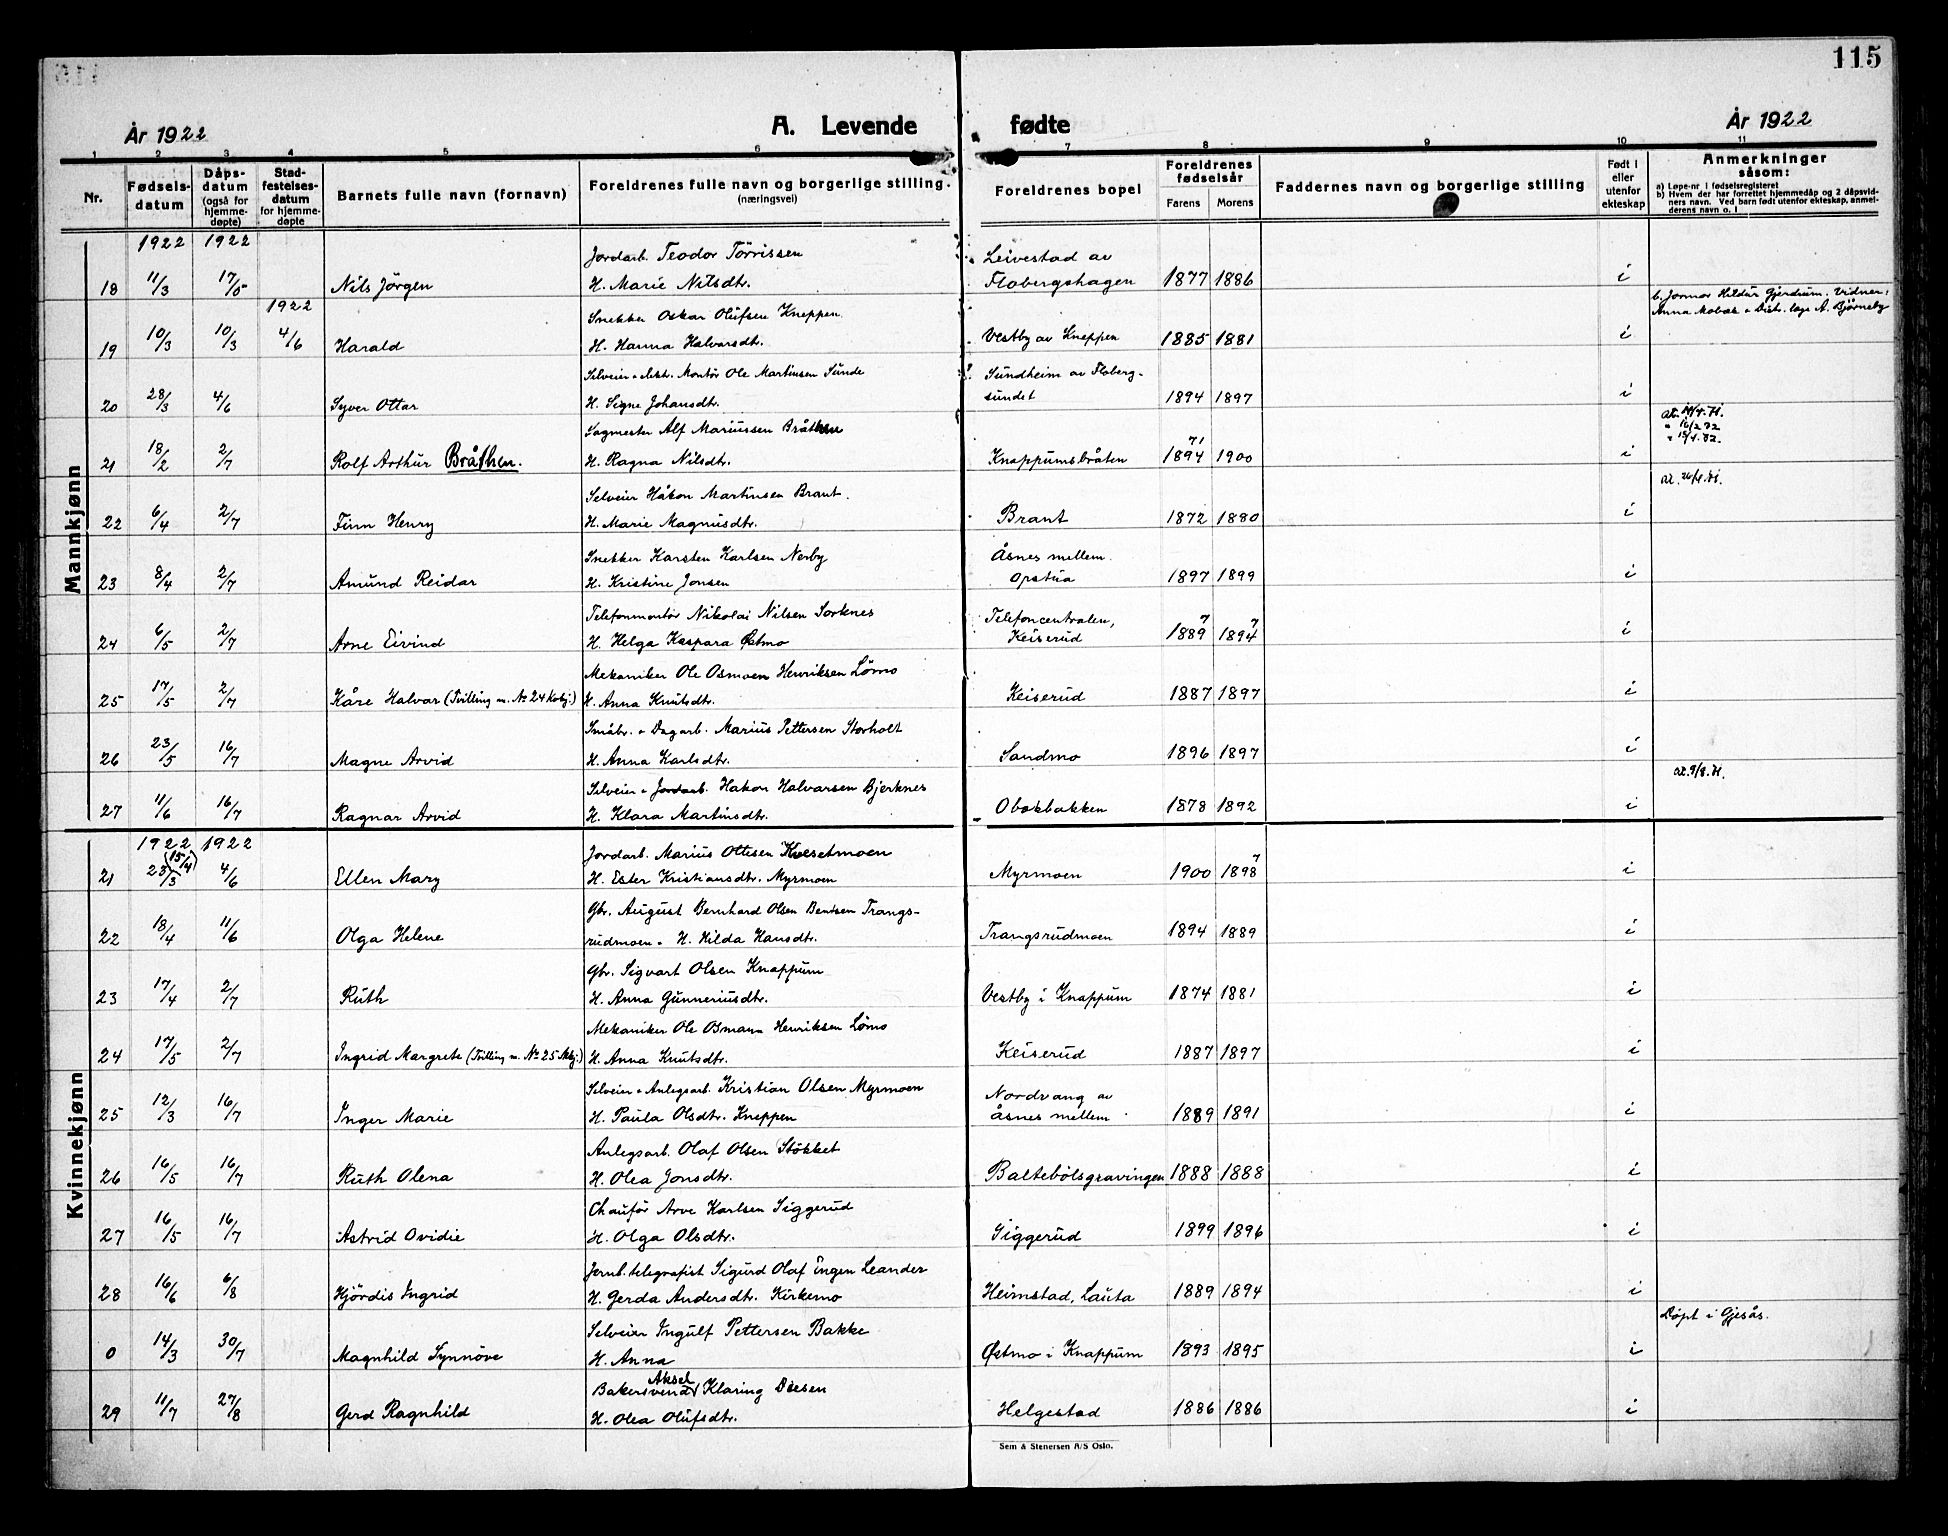 115
År 1922
A. Levende fødte
År 1922
1 2 3 4 5 6 7 8 9 10 11
Nr.
Fødselsdatum
Dåpsdatum (også for hjemmedøpte)
Stadfestelsesdatum for hjemmedøpte
Barnets fulle navn (fornavn)
Foreldrenes fulle navn og borgerlige stilling. (næringsvei)
Foreldrenes bopel
Foreldrenes fødselsår
Farens Morens
Faddernes navn og borgerlige stilling
Født i eller utenfor ekteskap
Anmerkninger såsom:
a) Løpe-nr i fødselsregisteret
b) Hvem der har forrettet hjemmedåp og 2 dåpsvidners navn. Ved barn født utenfor ekteskap, anmelderens navn o. l
Mannkjønn
1922 1922
Jordarb. Teodor Törrissen Leivestad av
18 11/3 17/5 Nils Jörgen H. Marie Nilsdtr. Flobergshagen 1877 1886 i
1922 Snekker Oskar Olufsen Kneppen b. Jormor Hildur Gjerdrum. Vidner:
19 10/3 10/3 4/6 Harald H. Hanna Halvarsdtr. Vestby av Kneppen 1885 1881 i Anna Mobæk + Distr. læge A. Bjørneby
Selveier + elektr. Montör Ole Martinsen Sunde Sundheim av Floberg-
20 28/3 4/6 Syver Ottar H. Signe Johansdtr. sundet 1894 1897 i
Sagmester Alf Mariussen Bråthen at. 14/4.71.
" 16/2 72
" 15/1.72.
21 18/2 2/7 Rolf Arthur Bråthen. H. Ragna Nilsdtr. Knappumsbråten 71 1894 1900 i
Selveier Håkon Martinsen Brant. at. 26/1.71.
22 6/4 2/7 Finn Henry H. Marie Magnusdtr. Brant 1872 1880 i
Snekker Karsten Karlsen Nerby Åsnes mellem.
23 8/4 2/7 Amund Reidar H. Kristine Jonsen Opstua 1897 1899 i
Telefonmontör Nikolai Nilsen Sorknes Telefoncentralen,
24 6/5 2/7 Arne Eivind H. Helga Kaspara Østmo Keiserud 7 1889 7 1894 i
Mekaniker Ole Osmoen Henriksen Lömo
25 17/5 2/7 Kåre Halvar (Tvilling m. No 24 Kvkj.) H. Anna Knutsdtr. Keiserud 1887 1897 i
Småbr. + Dagarb. Marius Pettersen Storholt
26 23/5 16/7 Magne Arvid H. Anna Karlsdtr. Sandmo 1896 1897 i
Selveier + Jordarb. Hakon Halvarsen Bjerknes at. 9/8.71.
27 11/6 16/7 Ragnar Arvid H. Klara Martinsdtr. Obækbakken 1878 1892 i
Kvinnekjønn
1922 1922
Jordarb. Marius Ottesen Kvesetmoen
21 23/3 (15/4) 4/6 Ellen Mary H. Ester Kristiansdtr. Myrmoen Myrmoen 1900 7 1898 i
Gbr. August Bernhard Olsen Bentsen Trangs-
22 18/4 11/6 Olga Helene rudmoen. H. Hilda Hansdtr. Trangsrudmoen 1894 1889 i
Gbr. Sigvart Olsen Knappum
23 17/4 2/7 Ruth H. Anna Gunneriusdtr. Vestby i Knappum 1874 1881 i
Mekaniker Ole Osmann Henriksen Lömo
24 17/5 2/7 Ingrid Margrete (Tvilling m. No 25 Mkj.) H. Anna Knutsdtr. Keiserud 1887 1897 i
Selveier + Anlegsarb. Kristian Olsen Myrmoen Nordvang av
25 12/3 16/7 Inger Marie H. Paula Olsdtr. Kneppen åsnes mellem 1889 1891 i
Anlegsarb. Olaf Olsen Stökket
26 16/5 16/7 Ruth Olena H. Olea Jonsdtr. Baltebölsgravingen 1888 1888 i
Chauför Arve Karlsen Siggerud
27 16/5 16/7 Astrid Ovidie H. Olga Olsdtr. Siggerud 1899 1896 i
Jernb. telegrafist Sigurd Olaf Engen Leander
28 16/6 6/8 Hjördis Ingrid H. Gerda Andersdtr. Kirkemo Heimstad, Lauta 1889 1894 i
Selveier Ingulf Pettersen Bakke Döpt i Gjesås.
0 14/3 30/7 Magnhild Synnöve H. Anna Østmo i Knappum 1893 1895 i
Aksel
Bakersvend Klaring Dresen
29 11/7 27/8 Gerd Ragnhild H. Olea Olufsdtr. Helgestad 1886 1886 i
Sem & Stenersen A/S Oslo.